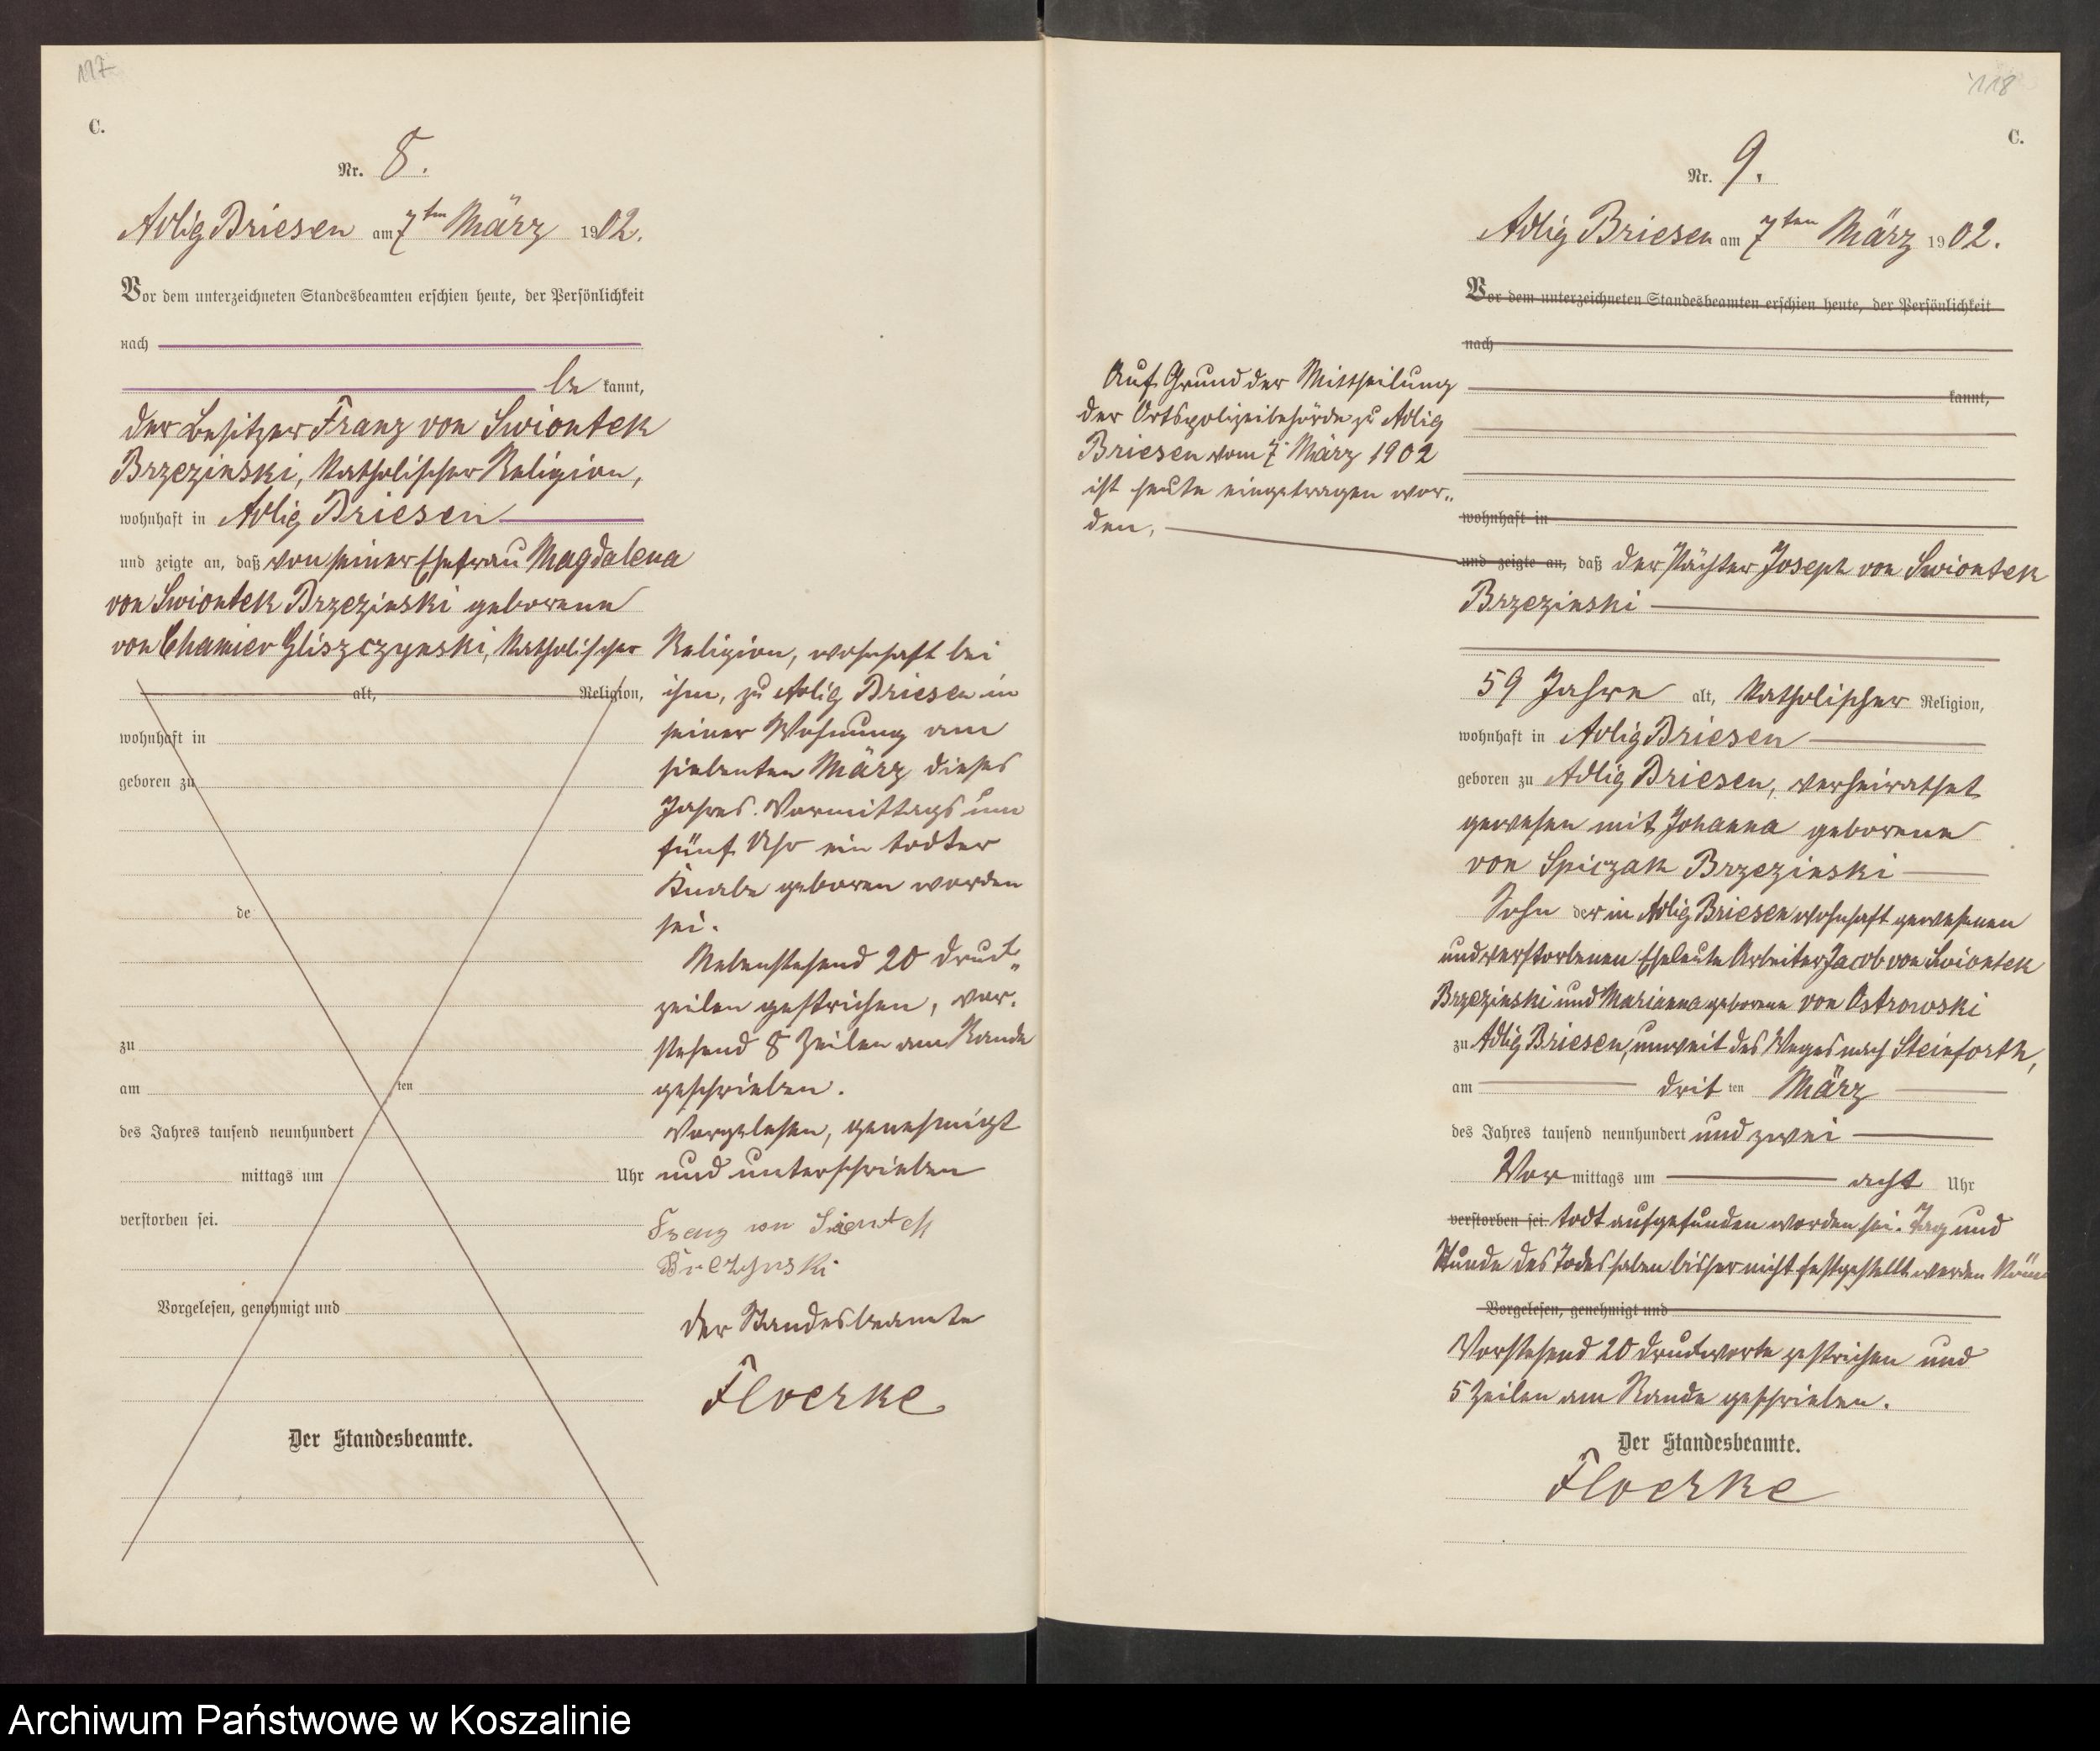 117
C.
Nr. 8.
Adlig Briesen am 7ten März 1902.
Vor dem unterzeichneten Standesbeamten erschien heute, der Persönlichkeit
nach
be kannt,
der Besitzer Franz von Swiontek
Brzezinski, katholischer Religion,
wohnhaft in Adlig Briesen
und zeigte an, daß von seiner Ehefrau Magdalena
von Swiontek Brzezinski geborene
von Chamier Gliszczynski, katholischer
alt, Religion,
wohnhaft in
geboren zu
de
zu
am ten
des Jahres tausend neunhundert
mittags um Uhr
verstorben sei.
Vorgelesen, genehmigt und
Der Standesbeamte.
Religion, wohnhaft bei
ihm, zu Adlig Briesen in
seiner Wohnung am
siebenten März dieses
Jahres Vormittags um
fünf Uhr ein todter
Knabe geboren worden
sei.
Nebenstehend 20 Druck„
zeilen gestrichen, vor„
stehend 8 Zeilen am Rande
geschrieben.
Vorgelesen, genehmigt
und unterschrieben
Franz von
der Standesbeamte
Floerke
118
C.
Nr. 9.
Adlig Briesen am 7ten März 1902.
Vor dem unterzeichneten Standesbeamten erschien heute, der Persönlichkeit
nach
kannt,
Auf Grund der Mittheilung
der Ortspolizeibehörde zu Adlig
Briesen vom 7. März 1902
ist heute eingetragen wor„
den,
wohnhaft in
und zeigte an, daß der Pächter Joseph von Swiontek
Brzezinski
59 Jahre alt, katholischer Religion,
wohnhaft in Adlig Briesen
geboren zu Adlig Briesen, verheirathet
gewesen mit Johanna geborene
von Spiczak Brzezinski
Sohn der in Adlig Briesen wohnhaft gewesenen
und verstorbenen Eheleute Arbeiter Jacob von Swiontek
Brzezinski und Marianna geborene von Ostrowski
zu Adlig Briesen, unweit des Weges nach Steinforth,
am drit ten März
des Jahres tausend neunhundert und zwei
Vor mittags um acht Uhr
verstorben sei. todt aufgefunden worden sei. Tag und
Stunde des Todes haben bisher nicht festgestellt werden
Vorgelesen, genehmigt und
Vorstehend 20 Druckworte gestrichen und
5 Zeilen am Rande geschrieben.
Der Standesbeamte.
Floerke
Archiwum Państwowe w Koszalinie